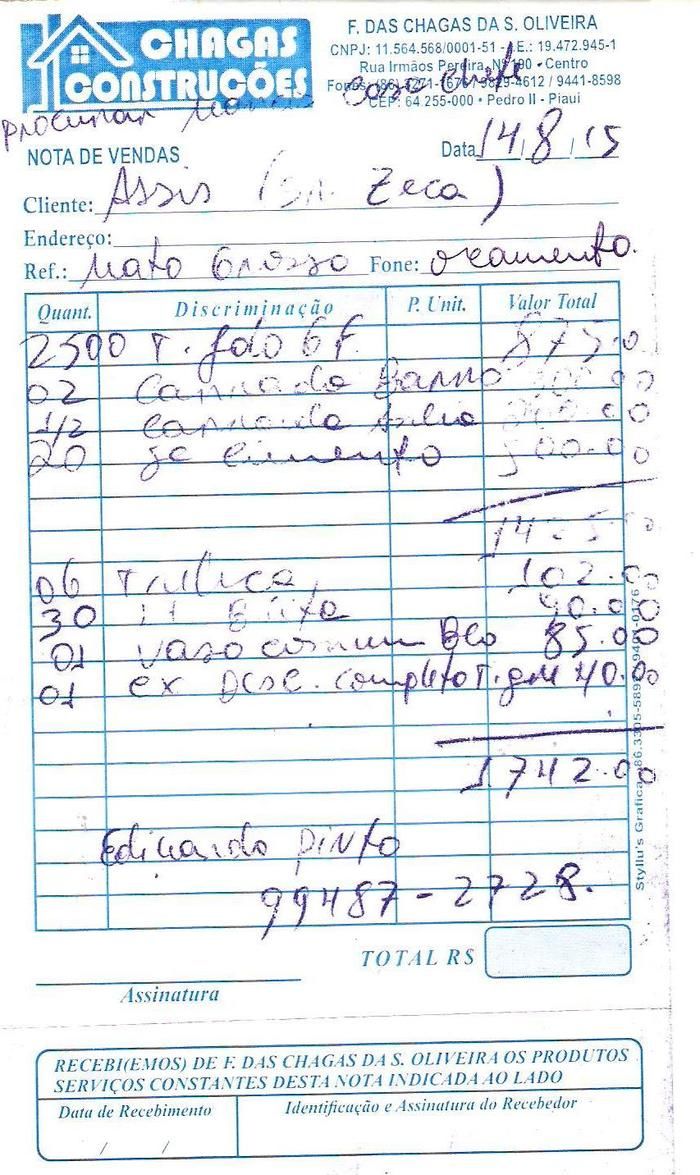 CHAGAS
CONSTRUÇÕES
F. DAS CHAGAS DA S. OLIVEIRA
CNPJ: 11.564.568/0001-51 - I.E.: 19.472.945-1
Rua Irmãos Pereira, Nº 100 - Centro
Fones: (86) 3271- / 9829-4612 / 9441-8598
CEP: 64.255-000 • Pedro II - Piaui
Procurar
NOTA DE VENDAS
Data 14/8/15
Cliente: Assis (Sr. Zeca)
Endereço:
Ref.: Mato Grosso Fone: orcamento.
Quant. Discriminação P. Unit. Valor Total
2500 T. 6 f. 875.0
02 Carrada Barro 00.00
1/2 carrada 00.00
20 sc cimento 500.00
14
06 102.00
30 90.00
01 vaso comum Bco 85.00
01 cx Desc. completo 40.00
1742.00
Pinto
99487-2728.
TOTAL R$
Assinatura
Styllu's Grafica
RECEBI(EMOS) DE F. DAS CHAGAS DA S. OLIVEIRA OS PRODUTOS
SERVIÇOS CONSTANTES DESTA NOTA INDICADA AO LADO
Data de Recebimento Identificação e Assinatura do Recebedor
/ /